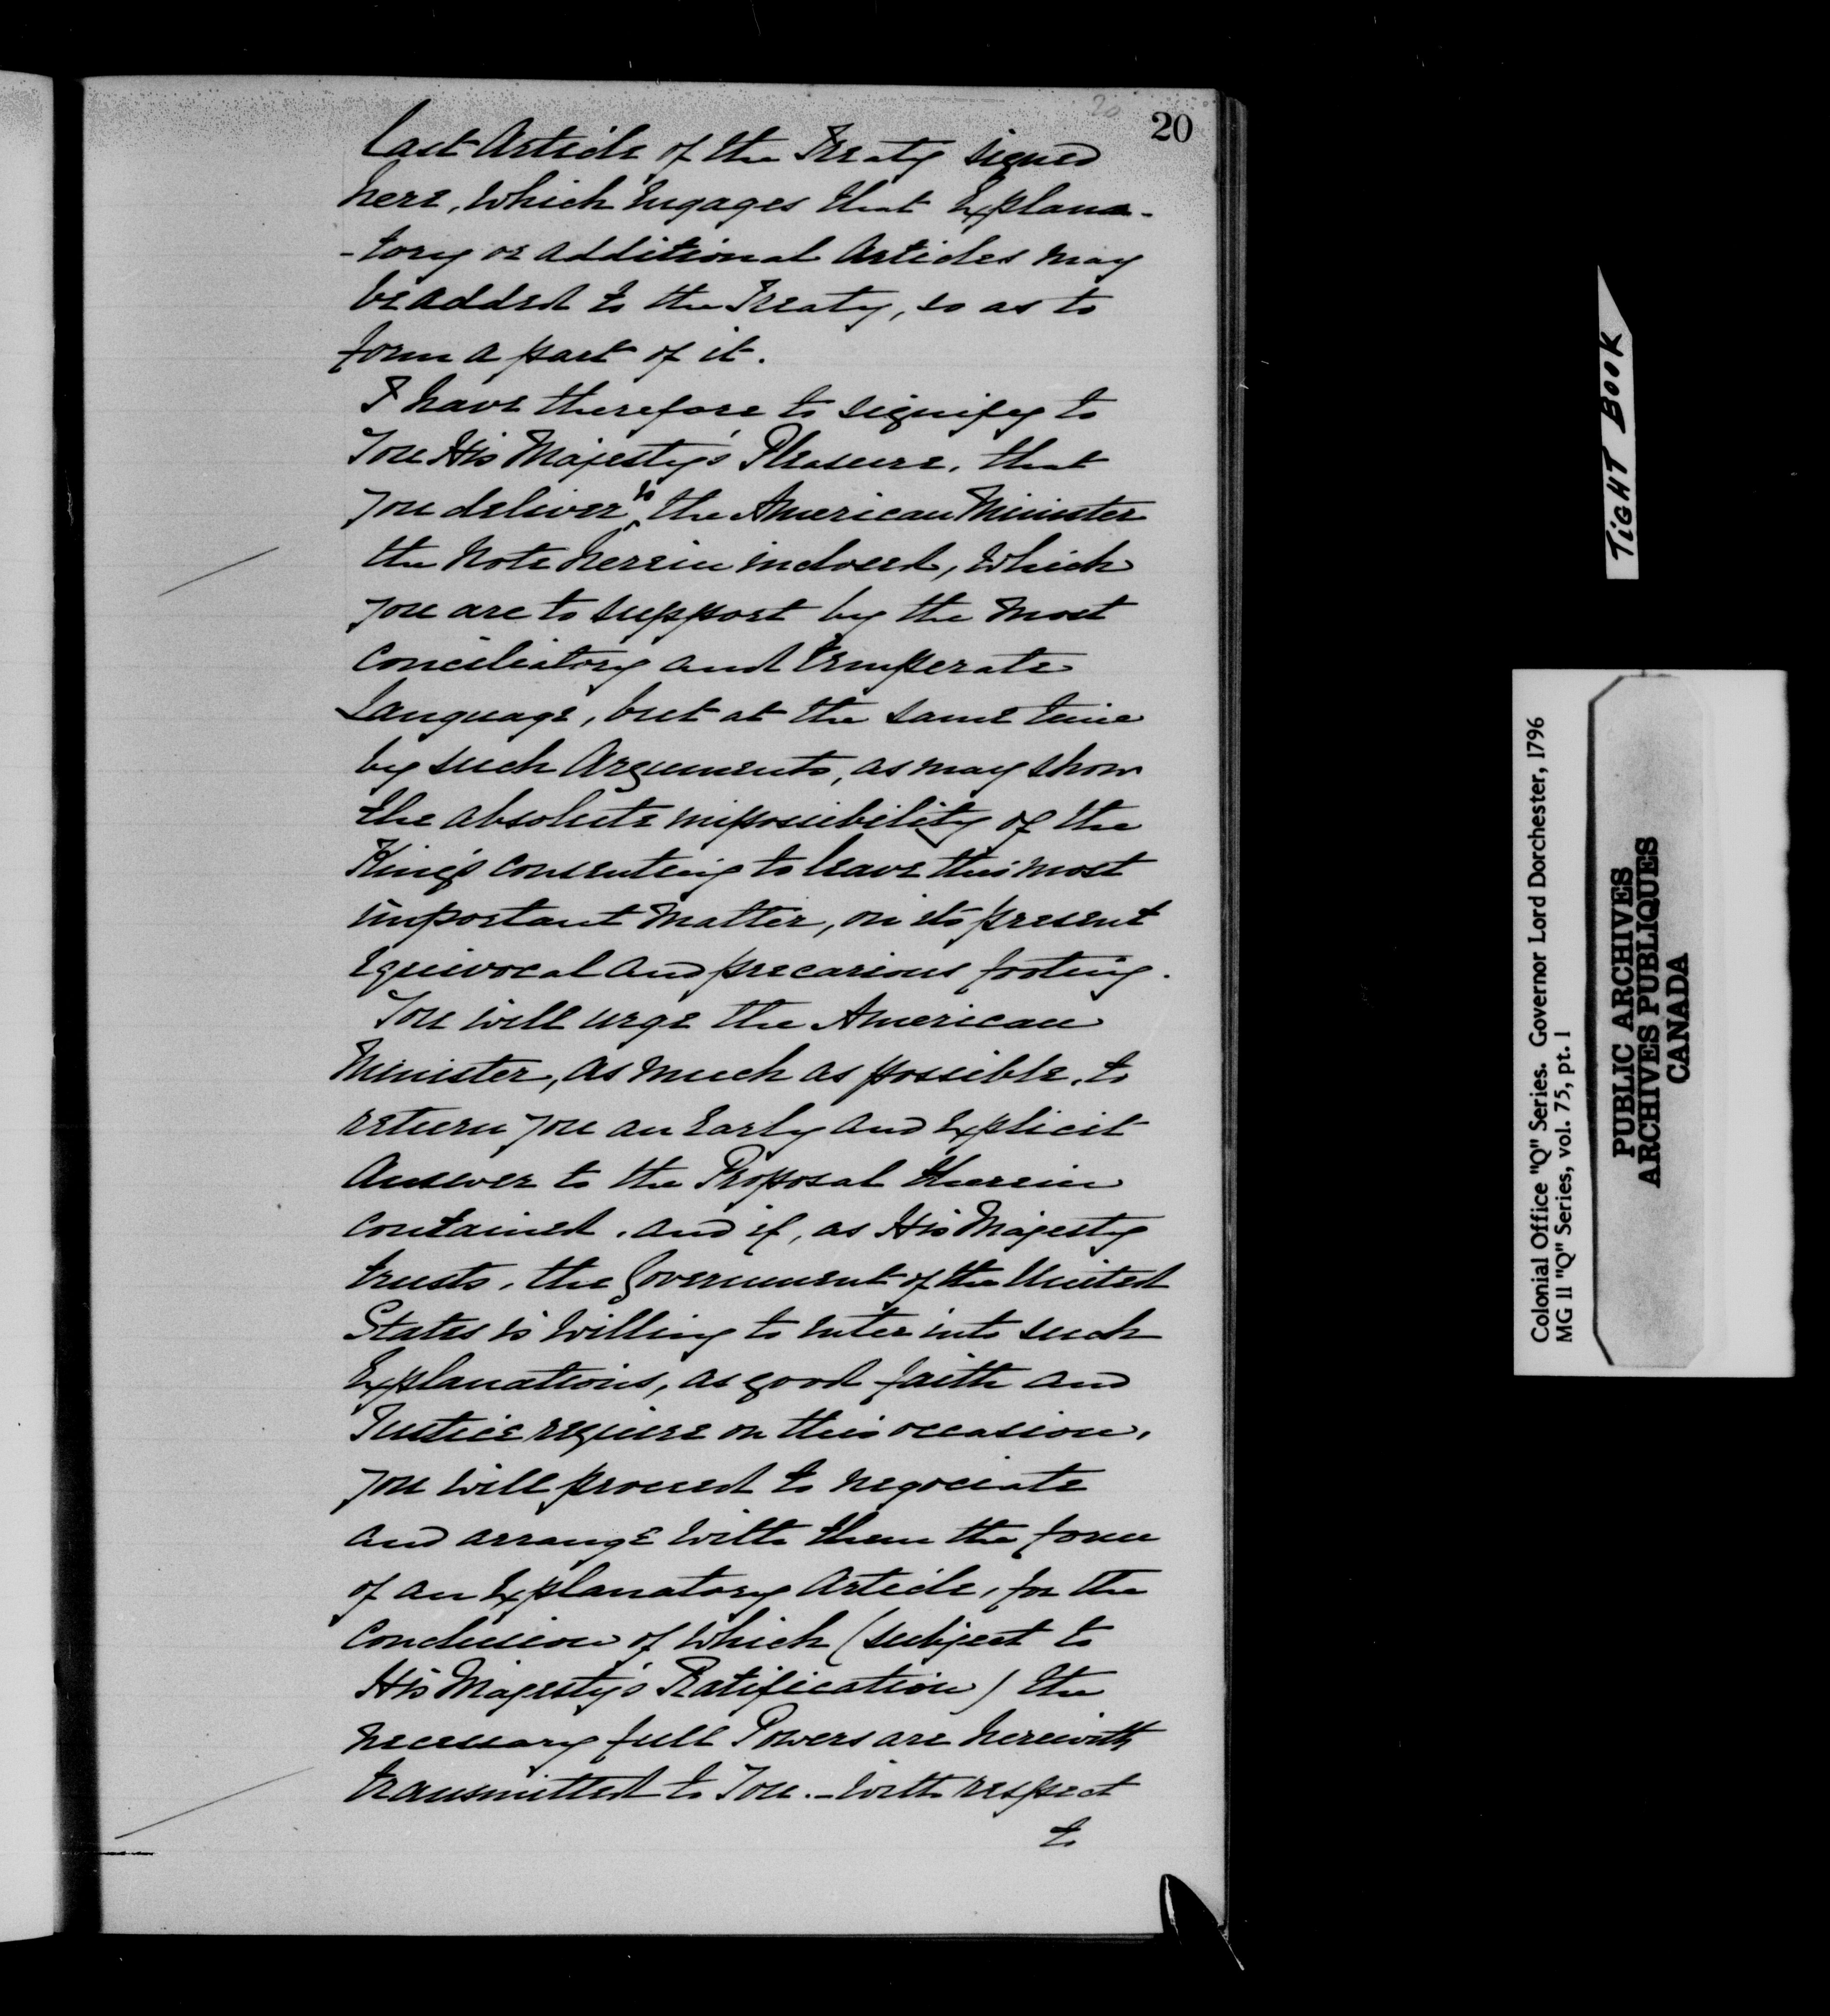 20
20
last Article of the Treaty signed
here, which engages that Explana-
-tory or additional Articles may
be added to the Treaty, so as to
form a part of it.
I have therefore to signify to
You His Majesty's Pleasure, that
you deliver to the American Minister
the Note herein inclosed, which
you are to support by the most
conciliatory and temperate
Language, but at the same time
by such Arguments, as may show
the absolute impossibility of the
King's consenting to leave this most
important matter, on its present
equivocal and precarious footing.
You will urge the American
Minister, as much as possible, to
return you an early and explicit
Answer to the Proposal therein
contained. and if, as His Majesty
trusts, the Government of the United
States is willing to enter into such
Explanations, as good faith and
Justice require on this occasion,
you will proceed to negociate
and arrange with them the form
of an Explanatory Article, for the
conclusion of which (subject to
His Majesty's Ratification) the
necessary full Powers are herewith
transmitted to You. - with respect
to
TIGHT BOOK
Colonial Office "Q" Series. Governor Lord Dorchester, 1796
MG 11 "Q" Series, vol. 75, pt. 1
PUBLIC ARCHIVES
ARCHIVES PUBLIQUES
CANADA